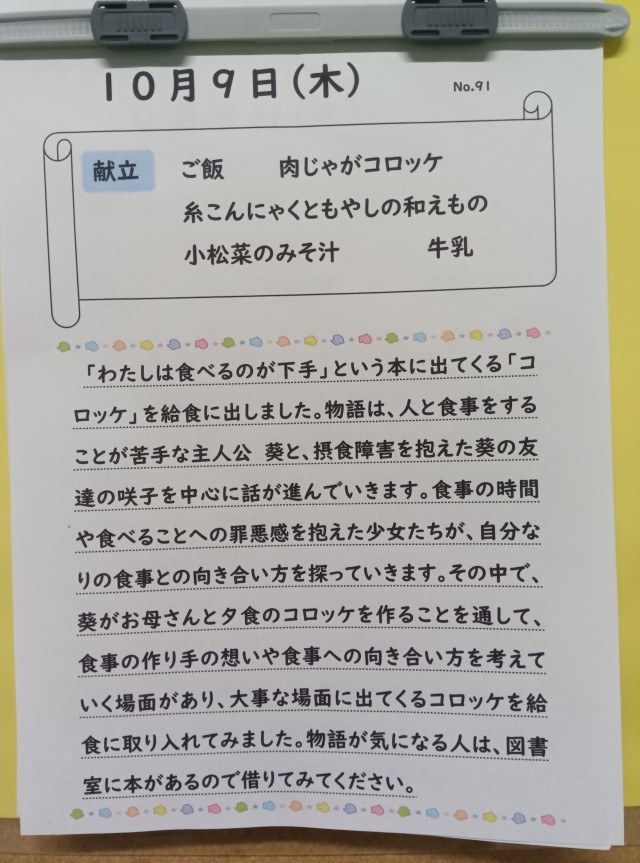 10月9日(木)
No.91
献立 ご飯 肉じゃがコロッケ
糸こんにゃくともやしの和えもの
小松菜のみそ汁 牛乳
「わたしは食べるのが下手」という本に出てくる「コ
ロッケ」を給食に出しました。物語は、人と食事をする
ことが苦手な主人公 葵と、摂食障害を抱えた葵の友
達の咲子を中心に話が進んでいきます。食事の時間
や食べることへの罪悪感を抱えた少女たちが、自分な
りの食事との向き合い方を探っていきます。その中で、
葵がお母さんと夕食のコロッケを作ることを通して、
食事の作り手の想いや食事への向き合い方を考えて
いく場面があり、大事な場面に出てくるコロッケを給
食に取り入れてみました。物語が気になる人は、図書
室に本があるので借りてみてください。